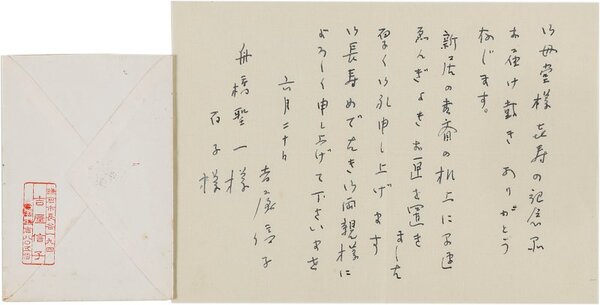 御母堂様喜寿の記念品
お届け戴きありがとう
存じます。
新居の書斎の机上に早速
ゑんぎよき を置きました
厚く御礼申し上げます
御長寿めでたき御両親様に
よろしく申し上げて下さいませ
六月二十日
吉屋信子
舟橋聖一様
百子様
鎌倉市長谷一九四
吉屋信子